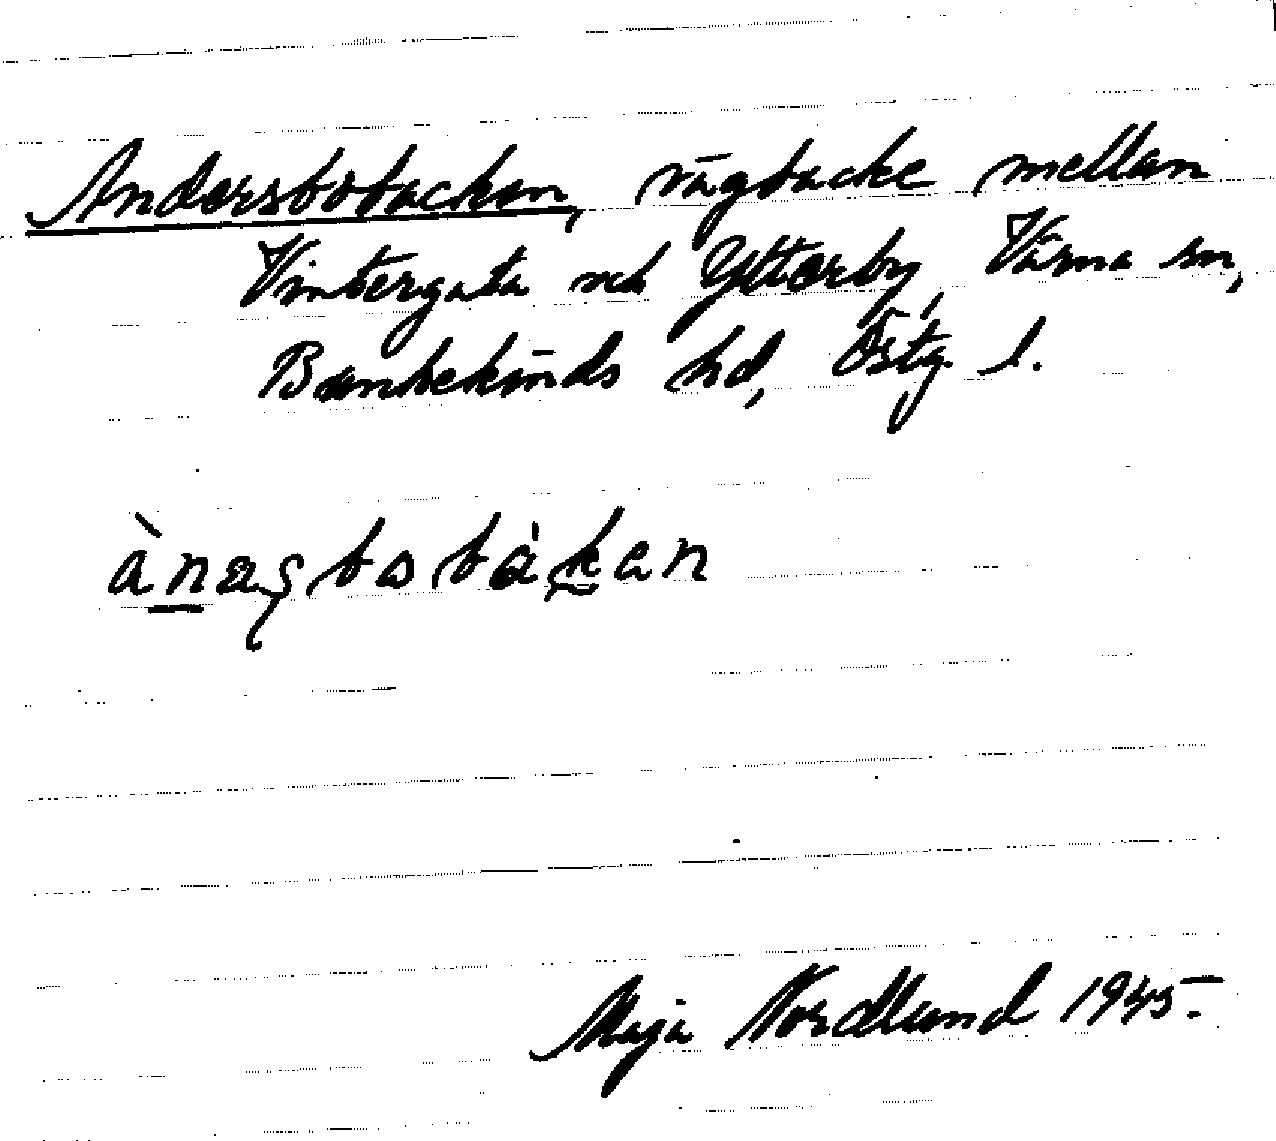 Andersbobacken, vägbacke mellan
Vintergata och Ytterby, Värna sn,
Bankekinds hd, Östg. l.
Maja Nordlund 1945.